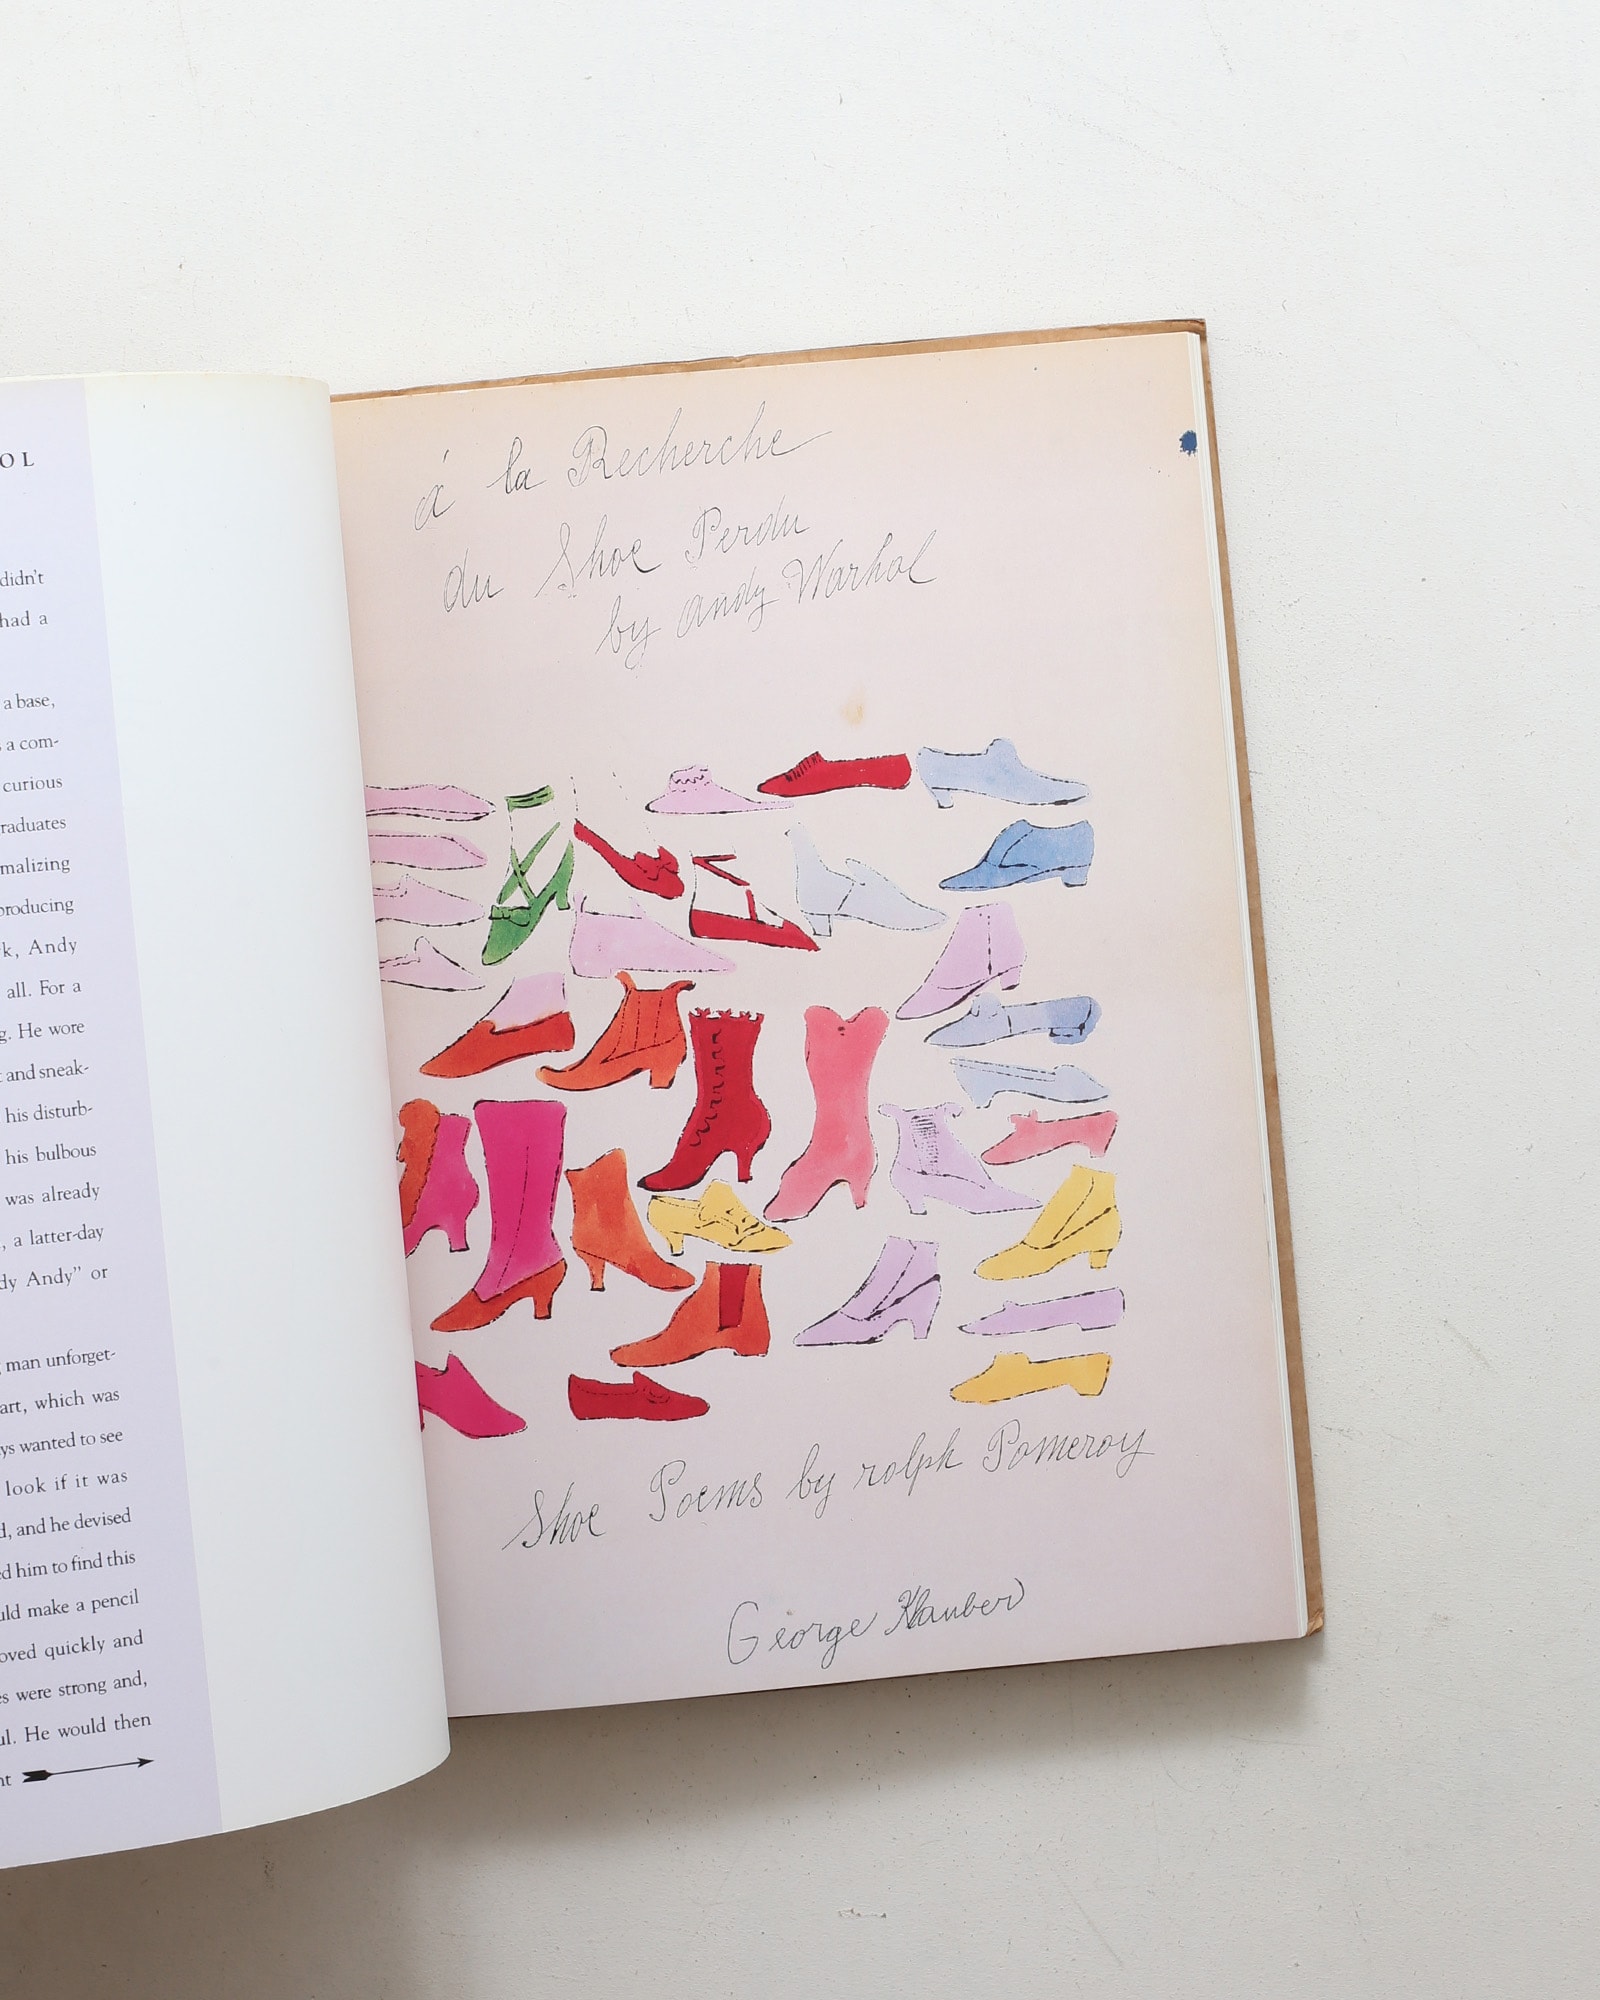 OL
didn't
had a
a base,
s a com-
curious
raduates
malizing
producing
k, Andy
all. For a
g. He wore
t and sneak-
his disturb-
his bulbous
was already
, a latter-day
dy Andy" or
man unforget-
art, which was
ys wanted to see
look if it was
d, and he devised
ed him to find this
uld make a pencil
oved quickly and
es were strong and,
ul. He would then
nt
á la Recherche
du Shoe Perdu
by andy Warhol
Shoe Poems by ralph Pomeroy
George Klauber